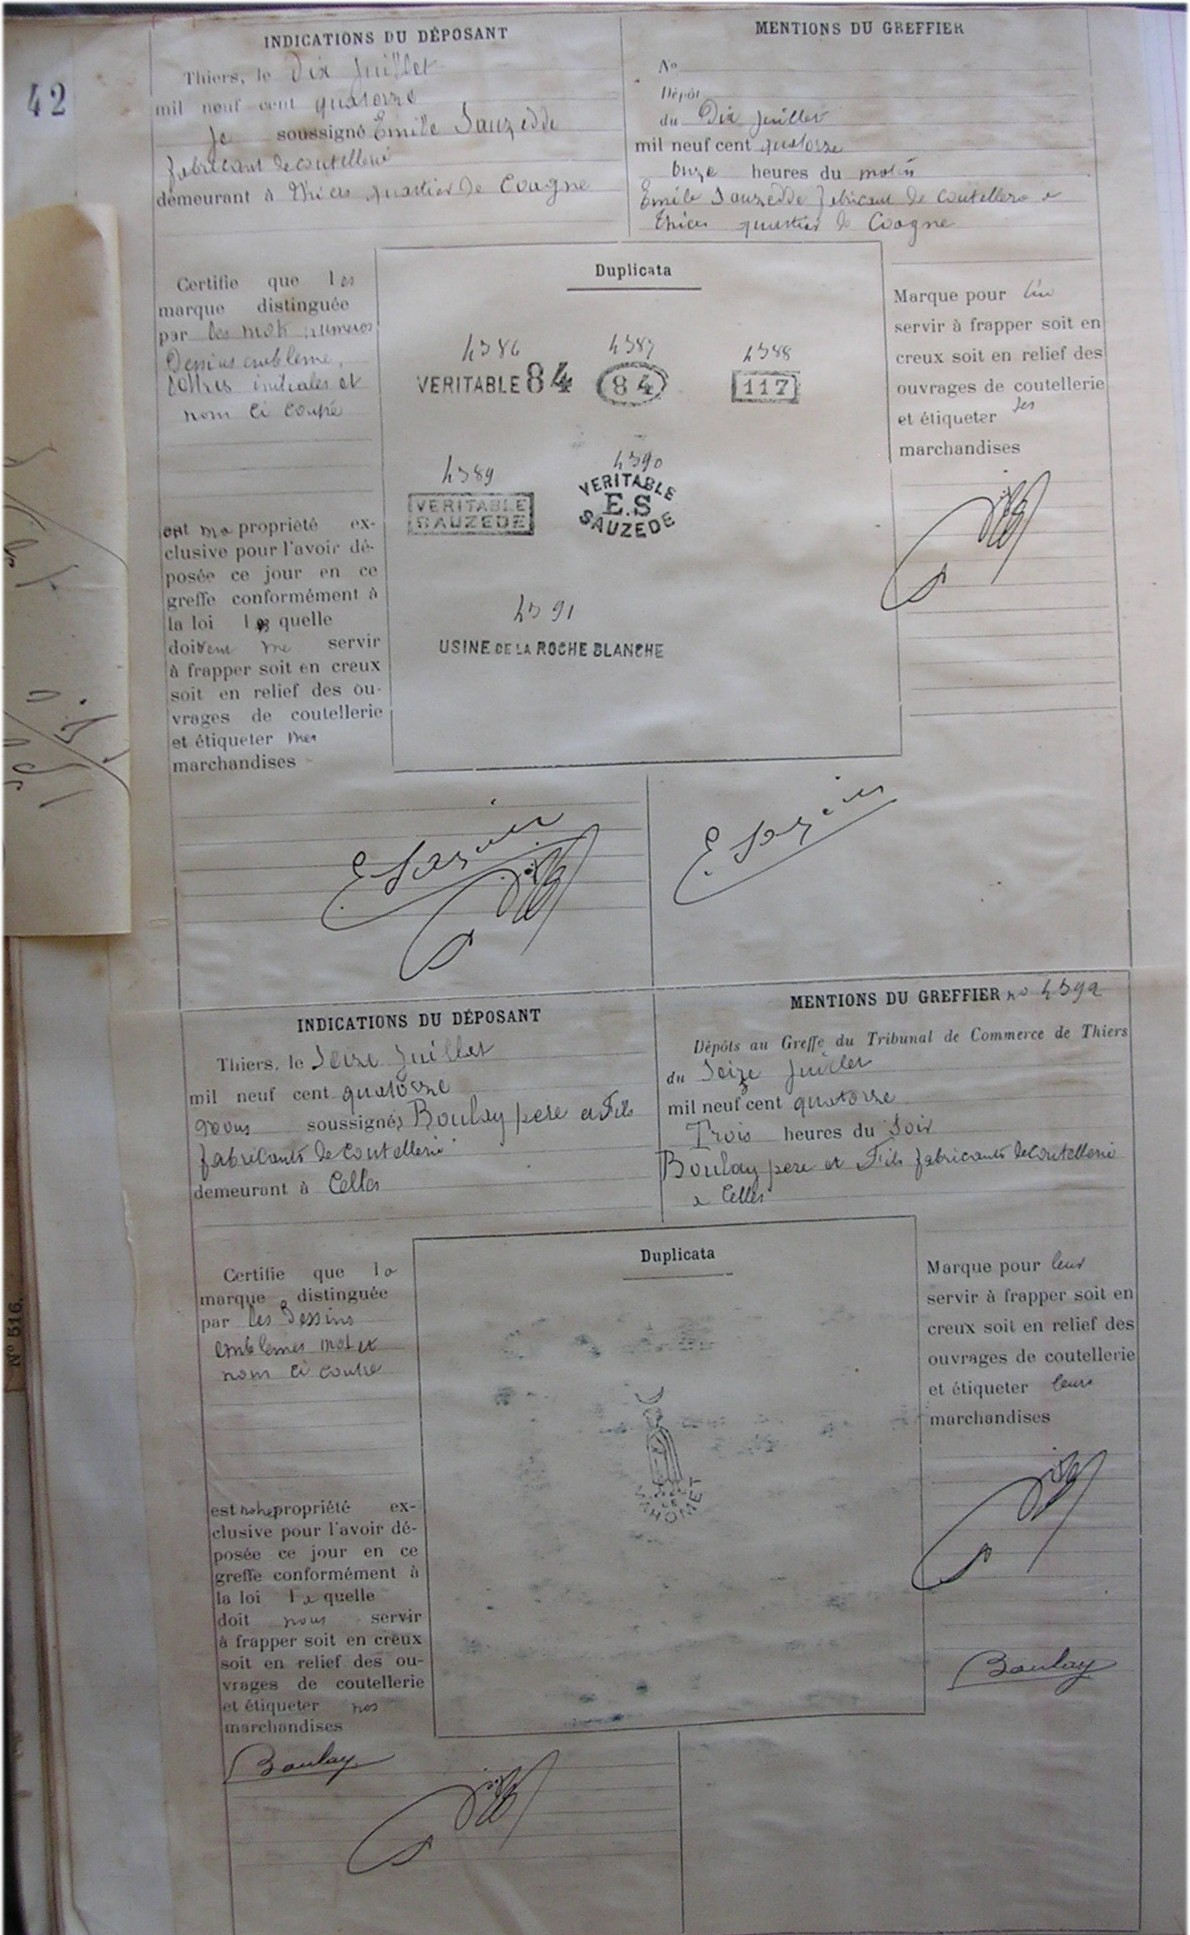 42
INDICATIONS DU DÉPOSANT
Thiers, le Dix Juillet
mil neuf cent quatorze
Je soussigné Emile Sauzedde
fabricant de coutellerie
demeurant à Thiers quartier de Coagne
MENTIONS DU GREFFIER
No
Dépôt
du Dix Juillet
mil neuf cent quatorze
Onze heures du matin
Emile Sauzedde fabricant de coutellerie a
Thiers quartier de Coagne
Certifie que les
marque distinguée
par les mots numeros
Dessins embleme,
lettres initiales et
nom ci contre
est ma propriété ex-
clusive pour l'avoir dé-
posée ce jour en ce
greffe conformément à
la loi les quelle
doivent me servir
à frapper soit en creux
soit en relief des ou-
vrages de coutellerie
et étiqueter mes
marchandises
Duplicata
4386
4387
4388
VERITABLE 84
84
117
4389
4390
VERITABLE
SAUZEDE
VERITABLE
E.S
SAUZEDE
4391
USINE DE LA ROCHE BLANCHE
Marque pour lui
servir à frapper soit en
creux soit en relief des
ouvrages de coutellerie
et étiqueter ses
marchandises
INDICATIONS DU DÉPOSANT
Thiers, le Seize Juillet
mil neuf cent quatorze
Nous soussignés Boulay pere et Fils
fabricants de coutellerie
demeurant à Celles
MENTIONS DU GREFFIER no 4392
Dépôts au Greffe du Tribunal de Commerce de Thiers
du Seize Juillet
mil neuf cent quatorze
Trois heures du Soir
Boulay pere et Fils fabricants de coutellerie
a Celles
Certifie que la
marque distinguée
par les Dessins
emblemes mot et
nom ci contre
est notre propriété ex-
clusive pour l'avoir dé-
posée ce jour en ce
greffe conformément à
la loi la quelle
doit nous servir
à frapper soit en creux
soit en relief des ou-
vrages de coutellerie
et étiqueter nos
marchandises
Duplicata
LE
MAHOMET
Marque pour leur
servir à frapper soit en
creux soit en relief des
ouvrages de coutellerie
et étiqueter leurs
marchandises
Boulay
Boulay
No 516.